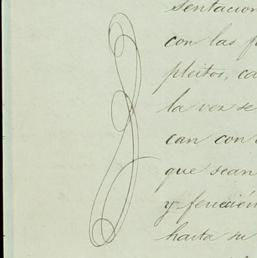 sentacion
con las p
pleitos, ca
la vez se
can con
que sean
y fenecien
hasta su